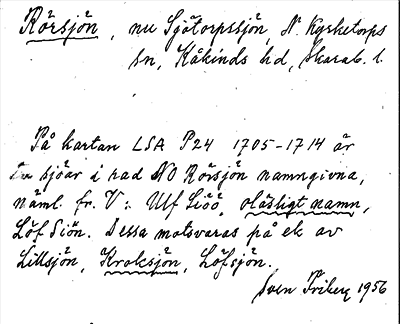 Rörsjön, nu Sjötorpssjön, N. Kyrketorps
sn, Kåkinds hd, Skarab. l.
På kartan LSA P24 1705-1714 är
tre sjöar i rad NO Rörsjön namngivna,
näml. fr. V: Ulf Siöö, oläsligt namn,
Löf Siön. Dessa motsvaras på ek av
Lillsjön, Kroksjön, Löfsjön.
Sven Friberg 1956